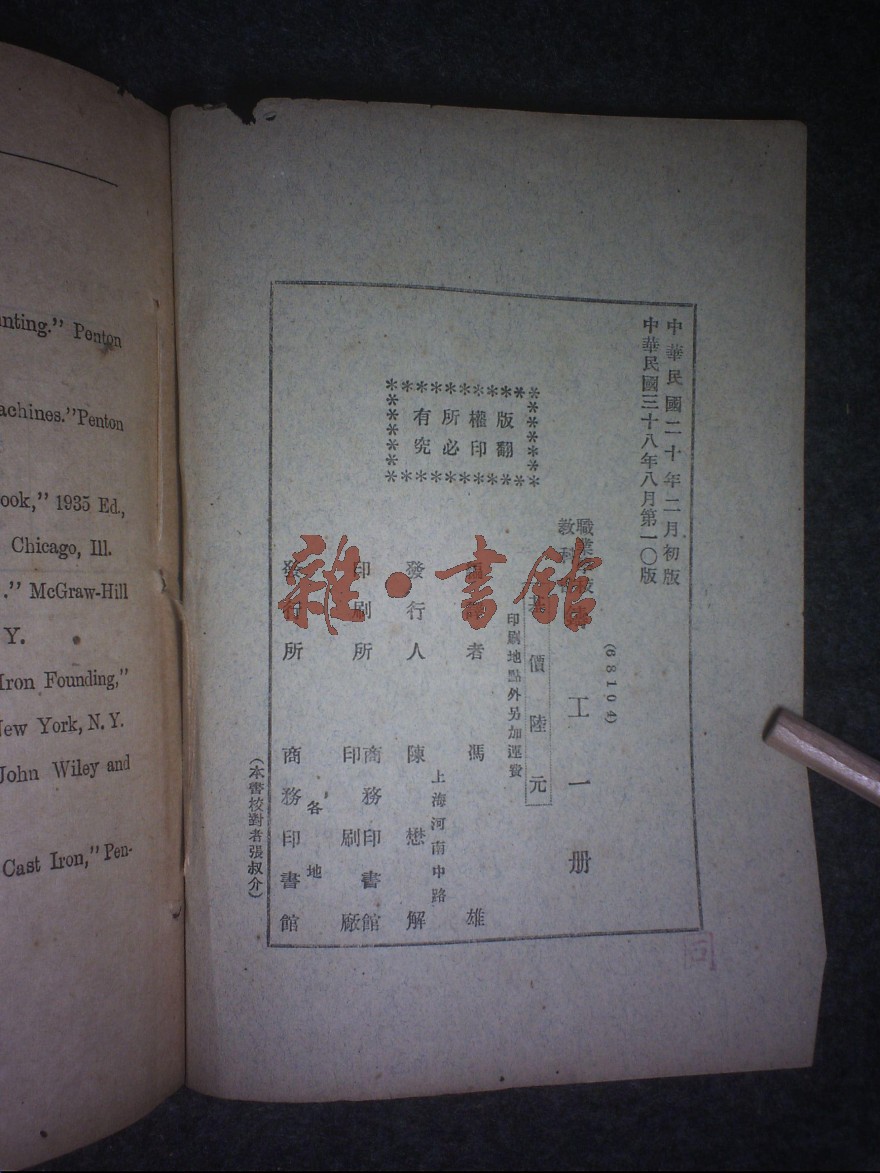 nting." Penton
achines."Penton
ook," 1935 Ed.,
Chicago, Ill.
." McGraw-Hill
Y.
Iron Founding,"
New York, N. Y.
John Wiley and
Cast Iron," Pen-
中華民國二十年二月初版
中華民國三十八年八月第一〇版
(68104)
職業學校
教科書
工一册
基價陸元
印刷地點外另加運費
版權所有
翻印必究
者 馮雄
上海河南中路
發行人 陳懋解
印刷所 商務印書館
印刷廠
各地
發行所 商務印書館
(本書校對者張叔介)
雜·書館